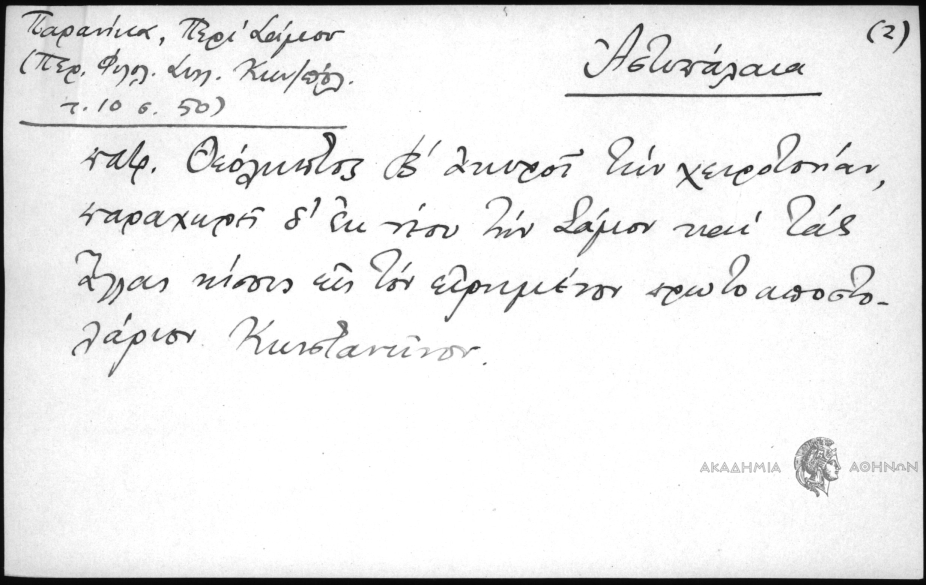 Παρανίκα, Περί Σάμου
(2)
(Περ. Φιλολ. Συλ. Κων/πόλ.
τ. 10 σ. 50)
Ἀστυπάλαια
πατρ. Θεόληπτος Β' ἀκυροῖ τὴν χειροτονίαν,
παραχωρεῖ δ' ἐκ νέου τὴν Σάμον καὶ τὰς
ἄλλας νήσους εἰς τὸν εἰρημένον πρωτοαποστο-
λάριον Κωνσταντῖνον.
ΑΚΑΔΗΜΙΑ ΑΘΗΝΩΝ